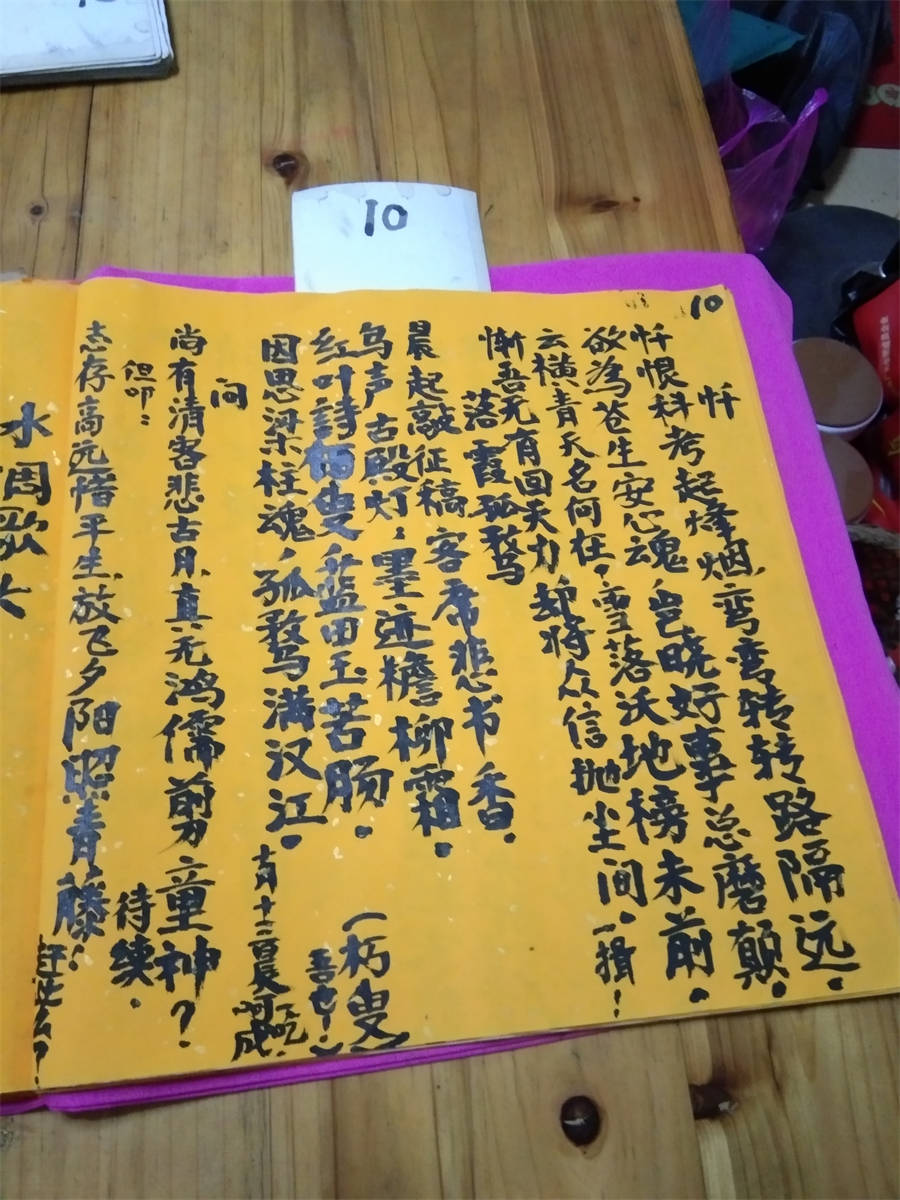 10
10
忏
忏恨科考起烽烟,弯弯转转路隔远。
欲为苍生安心魂,岂晓好事总磨颠。
云横青天名何在,雪落沃地榜未前。
惭吾无有回天力,却将众信抛尘间
落霞孤鹜
晨起敲征稿,客席悲书香。
乌声古殿灯,墨迹檐柳霜。
红叶诗朽叟,蓝田玉苦肠。
因思梁柱魂,孤鹜满汉江。
(朽叟
吾也!)
问
尚有清客悲古月,真无鸿儒剪童神?
但叩:
待续。
志存高远惜平生,放飞夕阳照青藤!
水调歌头